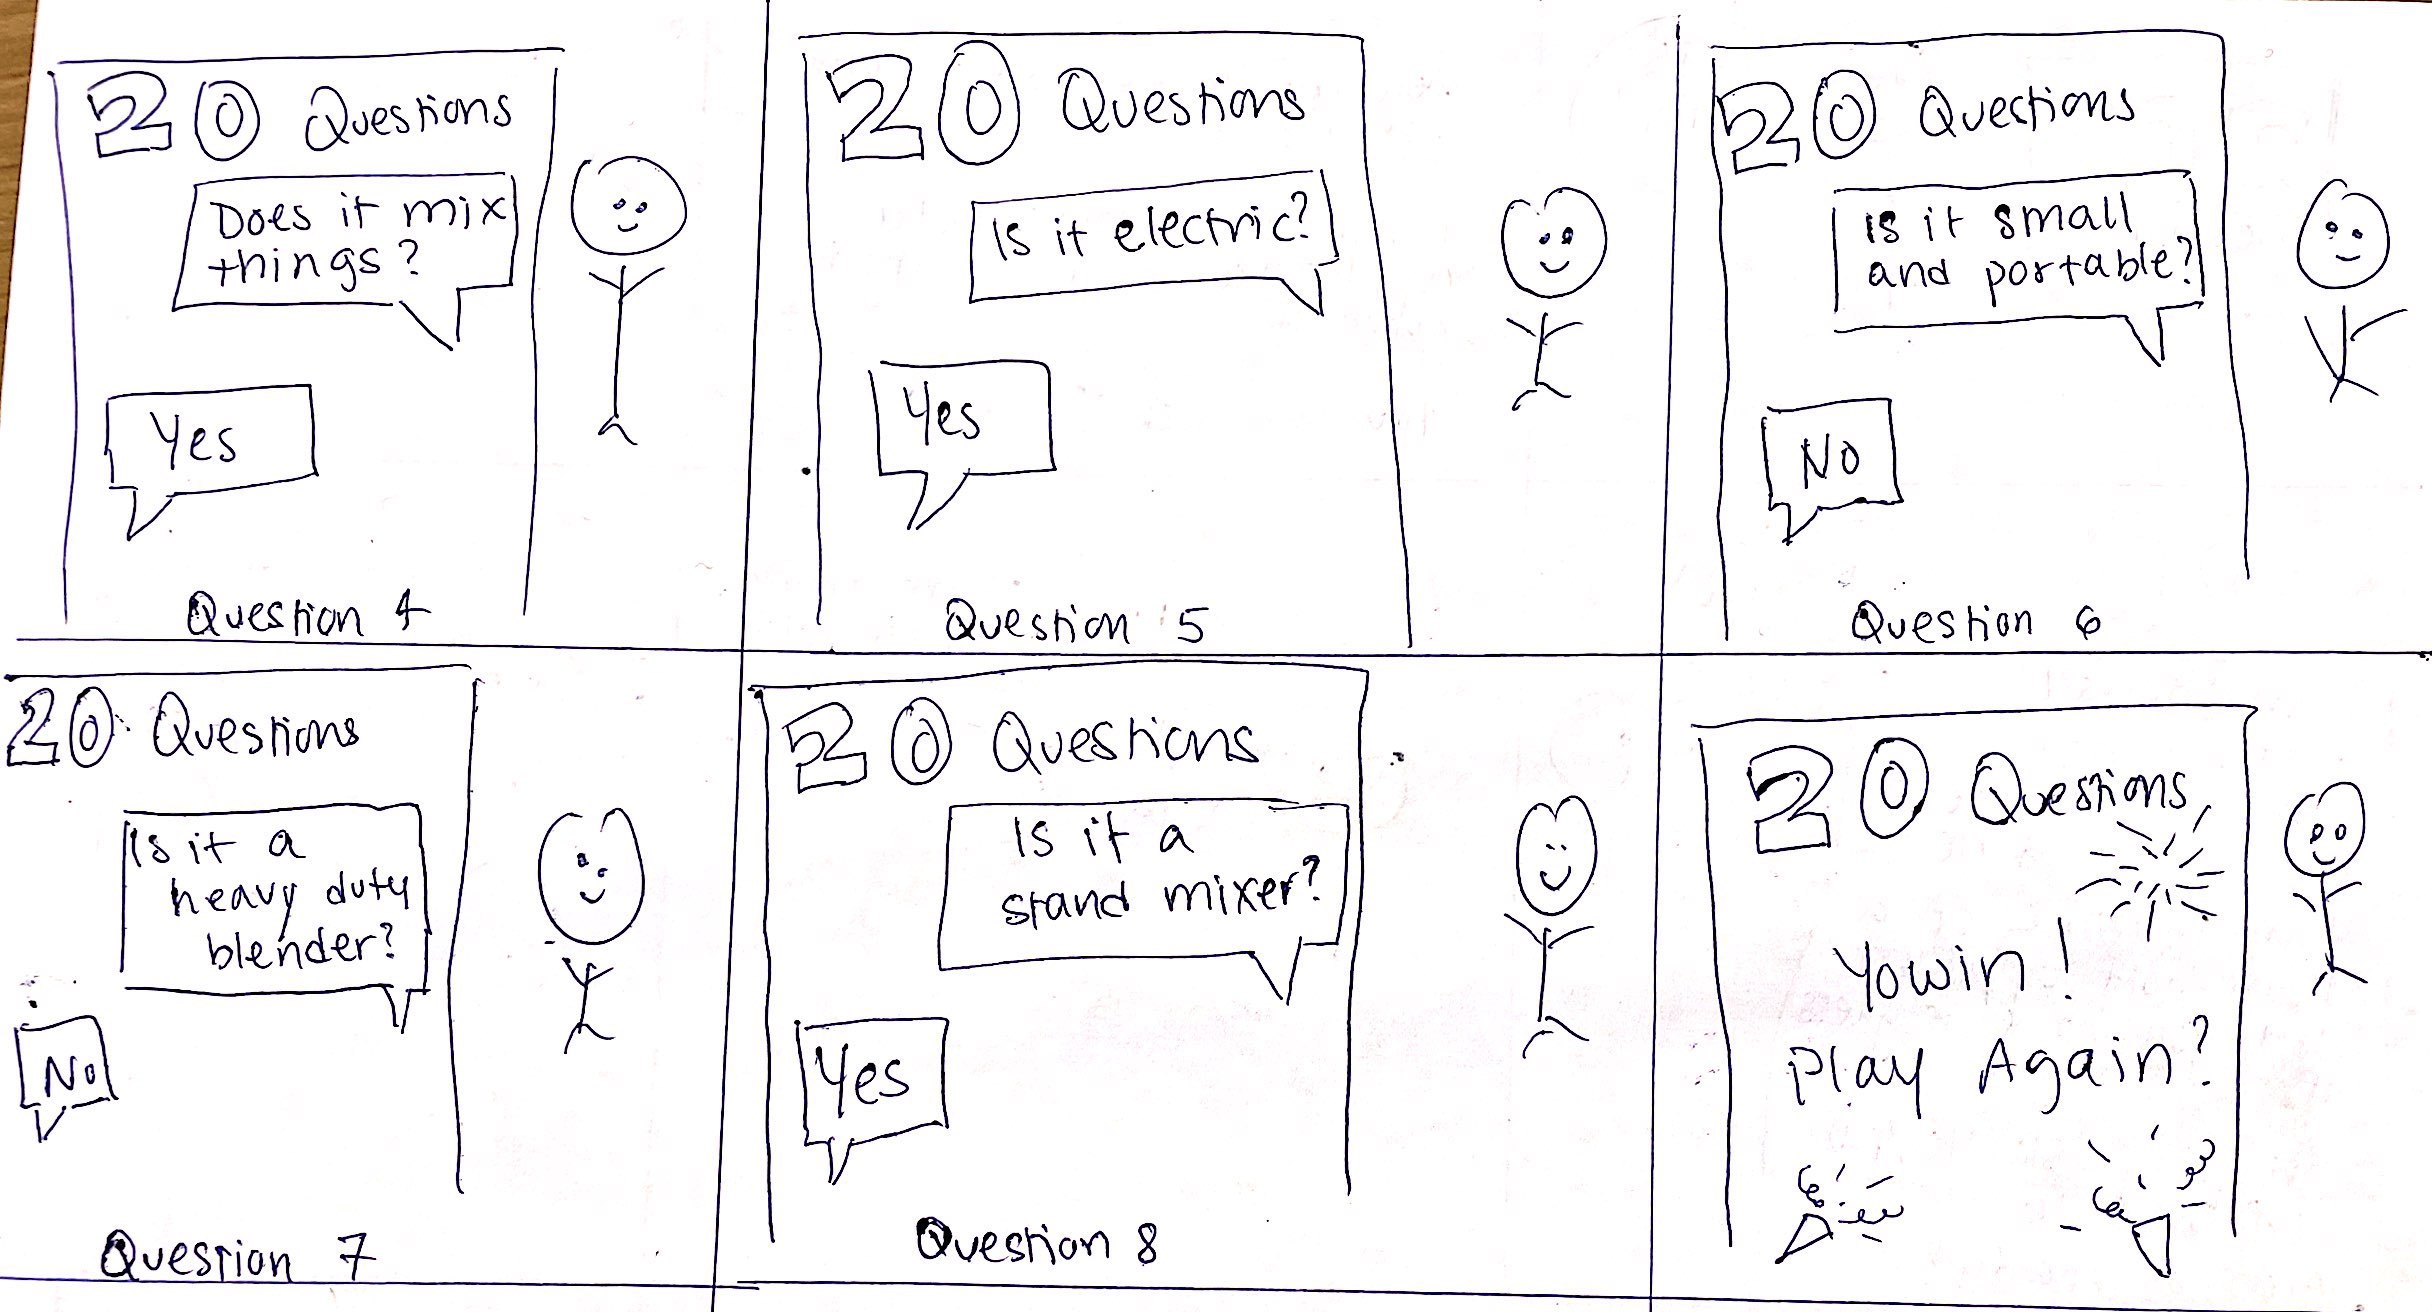 20 Questions
Does it mix
things?
Yes
Question 4
20 Questions
Is it electric?
Yes
Question 5
20 Questions
Is it small
and portable?
No
Question 6
20 Questions
Is it a
heavy duty
blender?
No
Question 7
20 Questions
Is it a
stand mixer?
Yes
Question 8
20 Questions
Yowin!
Play Again?